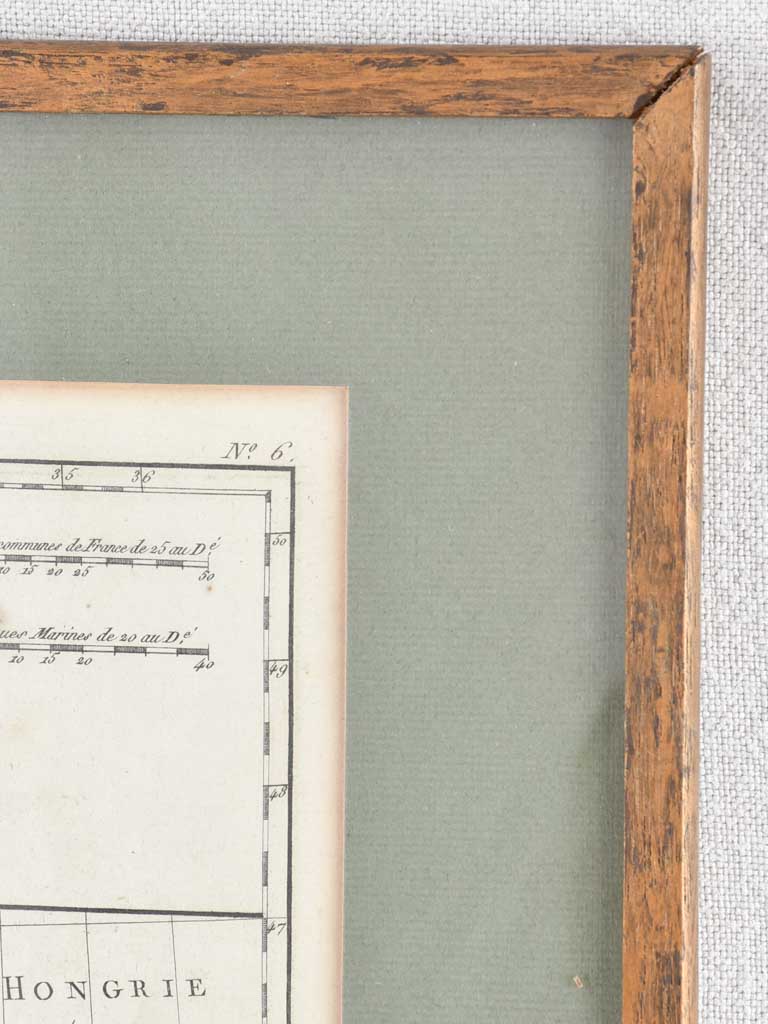 Nº. 6.
35 36
50
communes de France de 25 au D.é
10 15 20 25 50
ues Marines de 20 au D.é
10 15 20 40
49
48
47
HONGRIE